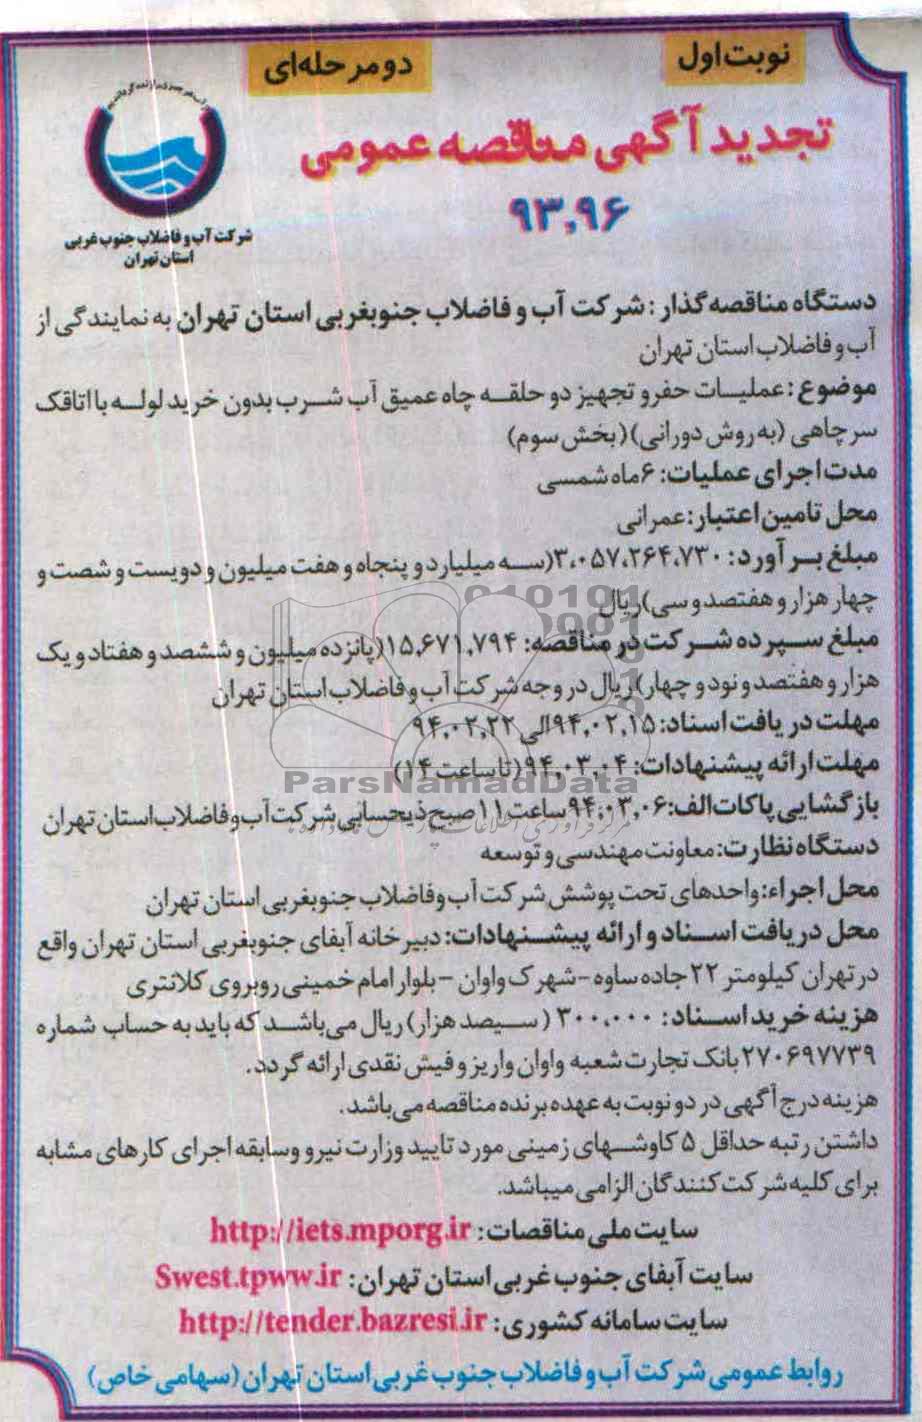 نوبت اول
دو مرحله‌ای
تجدید آگهی مناقصه عمومی
۹۳,۹۶
شرکت آب و فاضلاب جنوب غربی
استان تهران
دستگاه مناقصه گذار : شرکت آب و فاضلاب جنوبغربی استان تهران به نمایندگی از
آب و فاضلاب استان تهران
موضوع : عملیات حفر و تجهیز دو حلقه چاه عمیق آب شرب بدون خرید لوله با اتاقک
سر چاهی (به روش دورانی) (بخش سوم)
مدت اجرای عملیات: ۶ ماه شمسی
محل تامین اعتبار: عمرانی
مبلغ برآورد: ۳،۰۵۷،۲۶۴،۷۳۰(سه میلیارد و پنجاه و هفت میلیون و دویست و شصت و
چهار هزار و هفتصد و سی)ریال
مبلغ سپرده شرکت در مناقصه: ۱۵,۶۷۱,۷۹۴(پانزده میلیون و ششصد و هفتاد و یک
هزار و هفتصد و نود و چهار)ریال در وجه شرکت آب و فاضلاب استان تهران
مهلت دریافت اسناد: ۹۴,۰۲,۱۵الی ۹۴,۰۲,۲۲
مهلت ارائه پیشنهادات: ۹۴,۰۳,۰۴(تا ساعت ۱۴)
بازگشایی پاکات الف: ۹۴,۰۳,۰۶ساعت ۱۱ صبح ذیحسابی شرکت آب و فاضلاب استان تهران
دستگاه نظارت: معاونت مهندسی و توسعه
محل اجراء: واحدهای تحت پوشش شرکت آب و فاضلاب جنوبغربی استان تهران
محل دریافت اسناد و ارائه پیشنهادات: دبیرخانه آبفای جنوبغربی استان تهران واقع
در تهران کیلومتر ۲۲ جاده ساوه - شهرک واوان - بلوار امام خمینی روبروی کلانتری
هزینه خرید اسناد: ۳۰۰،۰۰۰ (سیصد هزار) ریال می‌باشد که باید به حساب شماره
۲۷۰۶۹۷۷۳۹ بانک تجارت شعبه واوان واریز و فیش نقدی ارائه گردد.
هزینه درج آگهی در دو نوبت به عهده برنده مناقصه می‌باشد.
داشتن رتبه حداقل ۵ کاوشهای زمینی مورد تایید وزارت نیرو و سابقه اجرای کارهای مشابه
برای کلیه شرکت کنندگان الزامی میباشد.
سایت ملی مناقصات: http://iets.mporg.ir
سایت آبفای جنوب غربی استان تهران: Swest.tpww.ir
سایت سامانه کشوری: http://tender.bazresi.ir
روابط عمومی شرکت آب و فاضلاب جنوب غربی استان تهران (سهامی خاص)
ParsNamadData